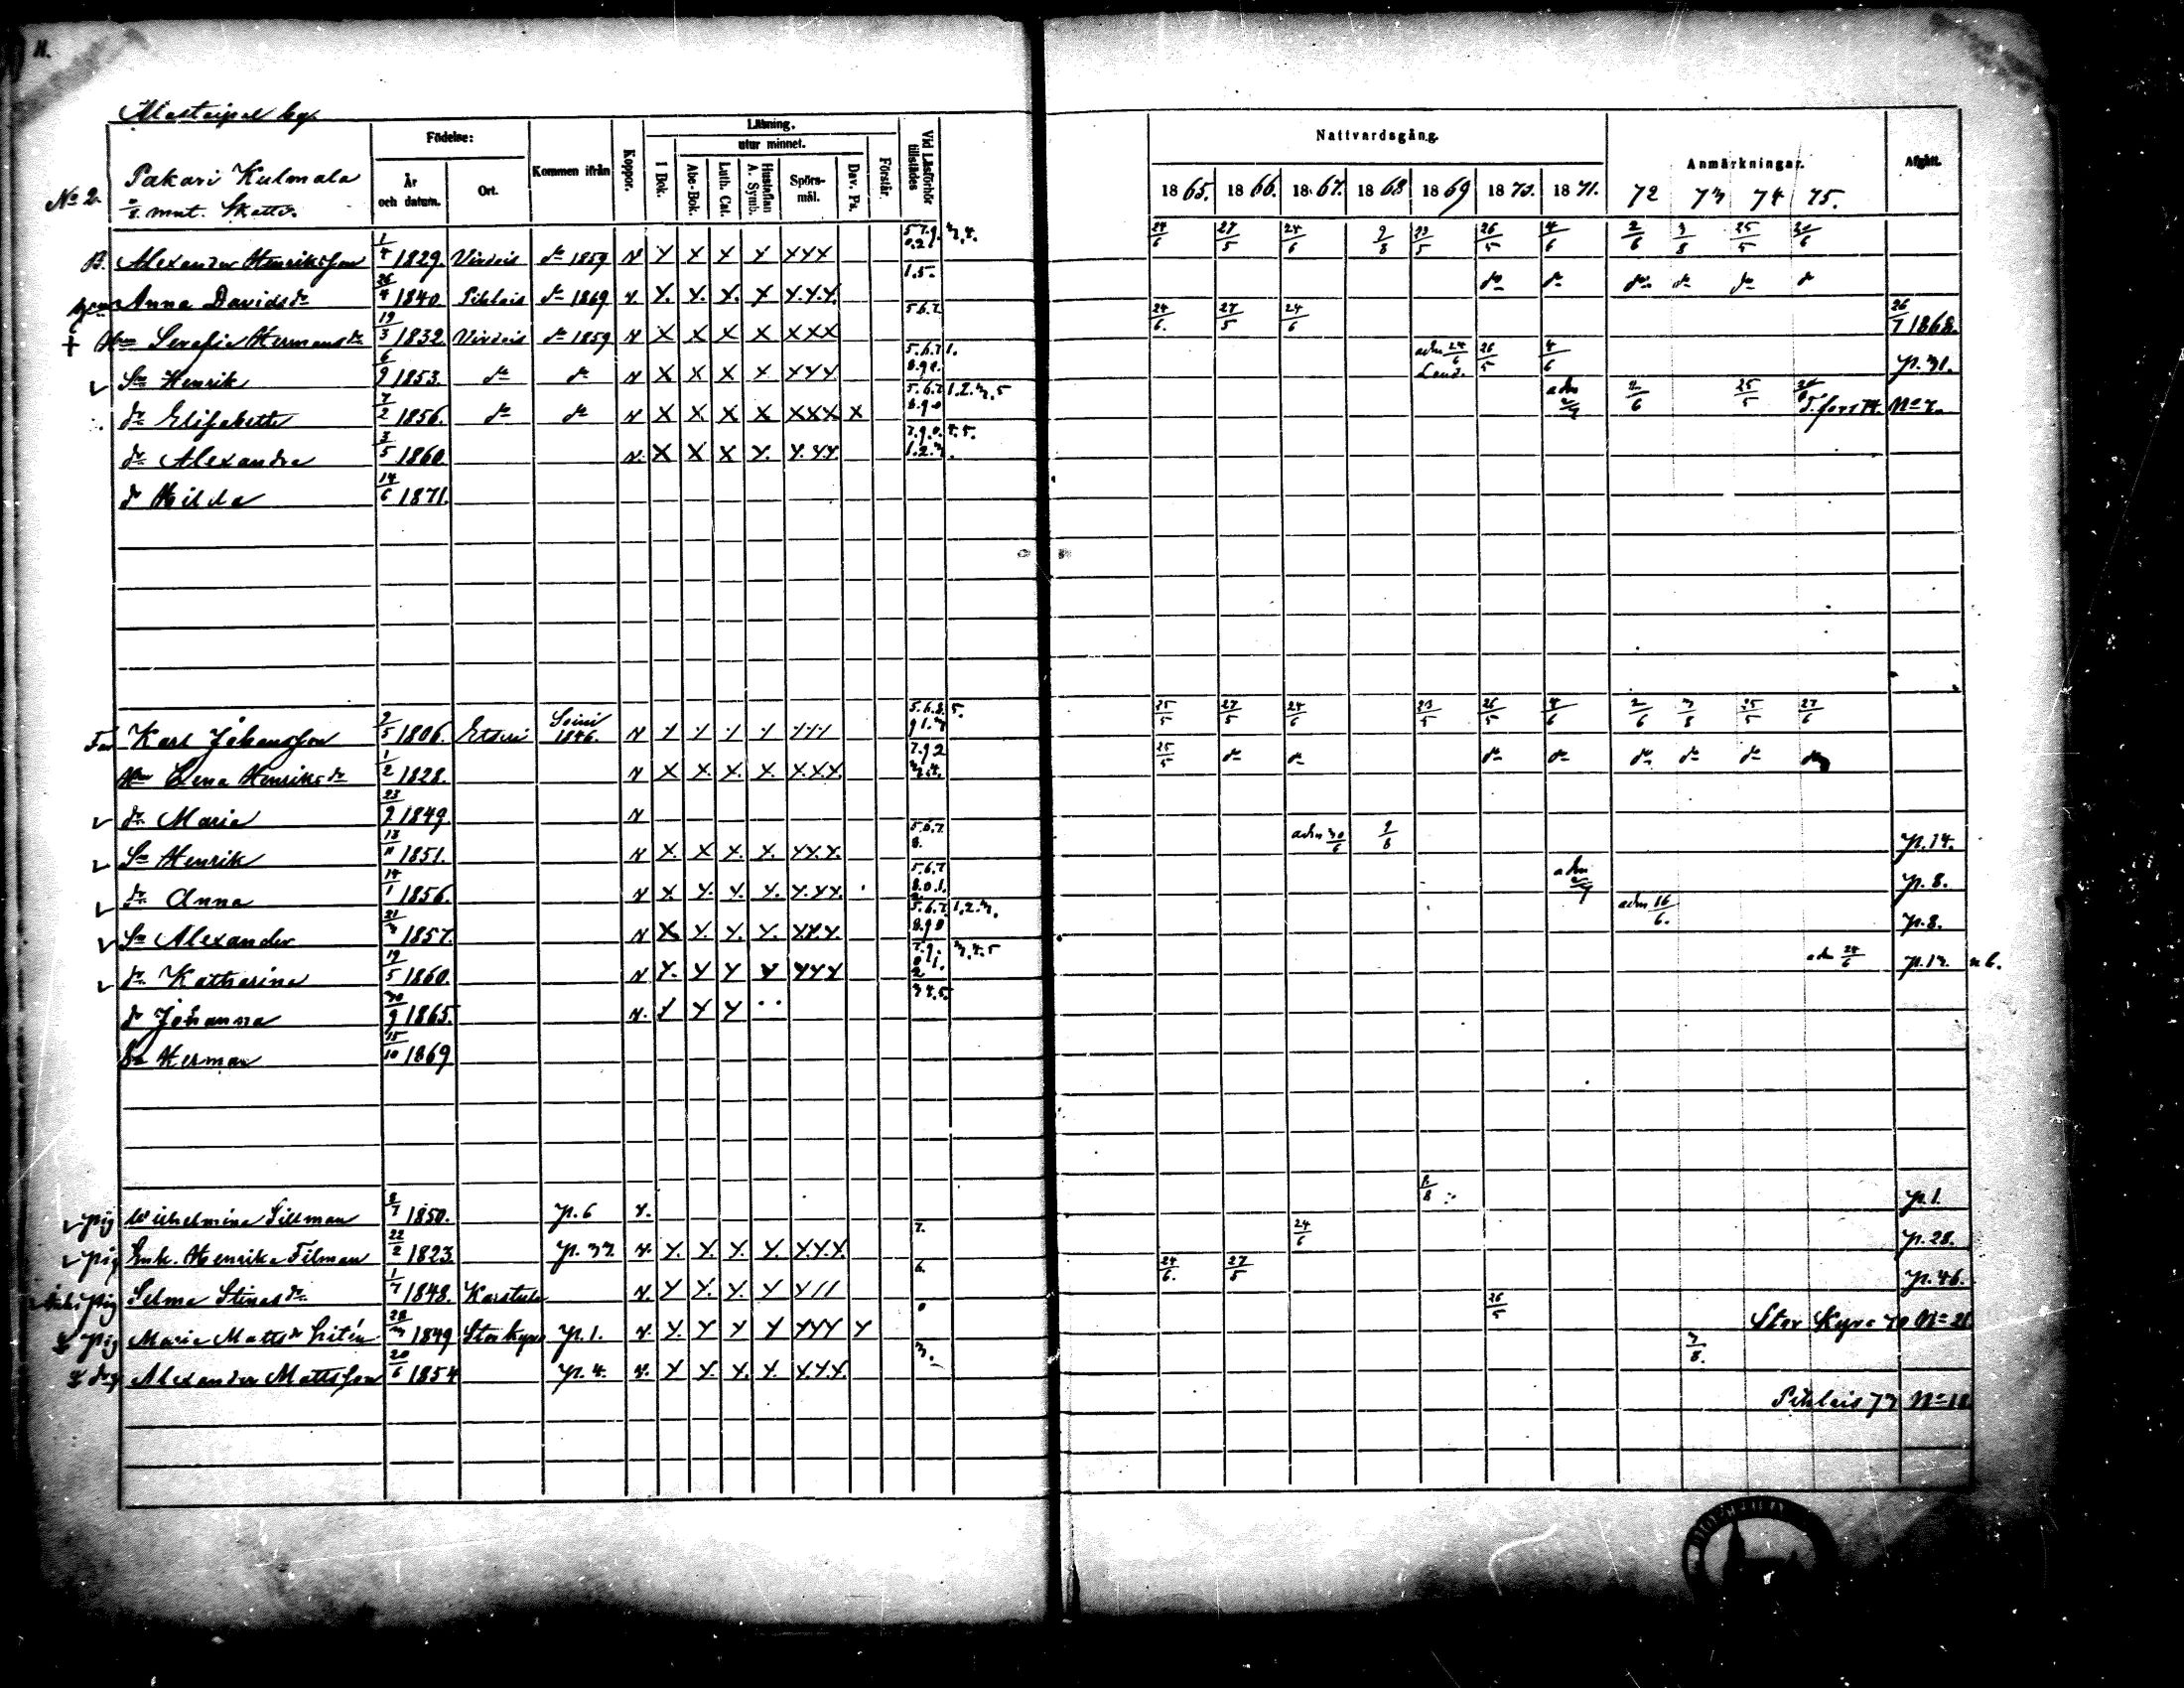 11.
Alastaipal by.
No 2. Pakari Kulmala
mnt. Skatte.
Födelse:
År och datum.
Ort.
Kommen ifrån
Koppor.
Läsning.
I Bok.
utur minnet.
Abc-Bok.
Luth. Cat.
Hustaflan A. Symb.
Spörs-mål.
Dav. Ps.
Förstår.
Vid Läsförhör tillstädes
Nattvardsgång.
1865. 1866. 1867. 1868 1869 1870. 1871.
Anmärkningar.
72 73 74 75.
Afgått.
B. Alexander Henriksson 1/4 1829. Virdois do 1859 N Y X X X XXX 24/6 27/5 24/6 9/8 23/5 26/5 4/6 2/6 3/8 25/5
Anna Davidsdr 26/4 1840. Pihlais do 1869 Y. Y. X. X Y.Y.Y. 1.5. do do do do do d
† Hm Serafia Hermansdr 19/3 1832 Virdois do 1859 N X X X X XXX 5.6.7. 24/6. 27/5 24/6 26/7 1868.
Sn Henrik 6/9 1853. do do N X X X X XYY 5.6.7 1. adm 24/6 26/5 4/6 p. 31.
dr Elisabeth 7/2 1856. do do N X X X X XXX X 5.6.7 1.2.3.5 8.9.0 adm 2/6 25/5 No 7.
dr Alexandra 3/5 1860. N. X X X Y. Y.YY 7.9.0. 4.5. 1.2.3
dr Hilda 14/6 1871.
Karl Johansson 2/5 1806. Etseri Soini 1846. N 5.6.8. 5. 9 1.3 25/5 27/5 24/6 23/5 26/5 4/6 2/6 3/8 25/5 27/6
Hm Lena Henriksdr 1/2 1828. N X X. X. X. X.X.X. 7.9 2 3.4. 25/5 do do do do do do do
dr Maria 23/9 1849. N
Sn Henrik 13/11 1851. N X. X X. X. XX.X. 5.6.7. 8. adm 30/6 9/8 p. 14.
dr Anna 14/1 1856. N X Y. Y. Y. Y.XX. 5.6.7 8.0.1. adm p. 8.
Sn Alexander 21/3 1857. N X Y. Y. Y. Y.Y.Y. 5.6.7. 1.2.3. 8.9 0 adm 16/6. p. 8.
dr Katharina 19/5 1860. N Y. Y Y Y YYY 7.9. 3.4.5 0 1. 2 adm 24/6 p. 13.
dr Johanna 30/9 1865. N. Y Y Y 3 4.5.
Sn Herman 15/10 1869
pig Wilhelmina Tillman 8/7 1850. p. 6 8/8 p. 1.
pig Enk. Henrika Tilman 22/2 1823. p. 32 N. Y. Y. Y. Y. Y.Y.Y. 7. 24/6 p. 28.
pig Selma Stinasdr 1/7 1848. Karstula N. Y Y. Y. Y Y// 6. 24/6. 27/5 p. 46.
pig Maria Mattsdr 28/3 1849 Storkyro p. 1. N. Y. Y Y Y YYY Y 0 26/5 Stor Kyro 70 No 21
drg Alexander Mattsson 20/6 1854 p. 4. N. Y Y. Y. Y. Y.Y.Y. 3. 3/8.
Pihlais 73 No 18